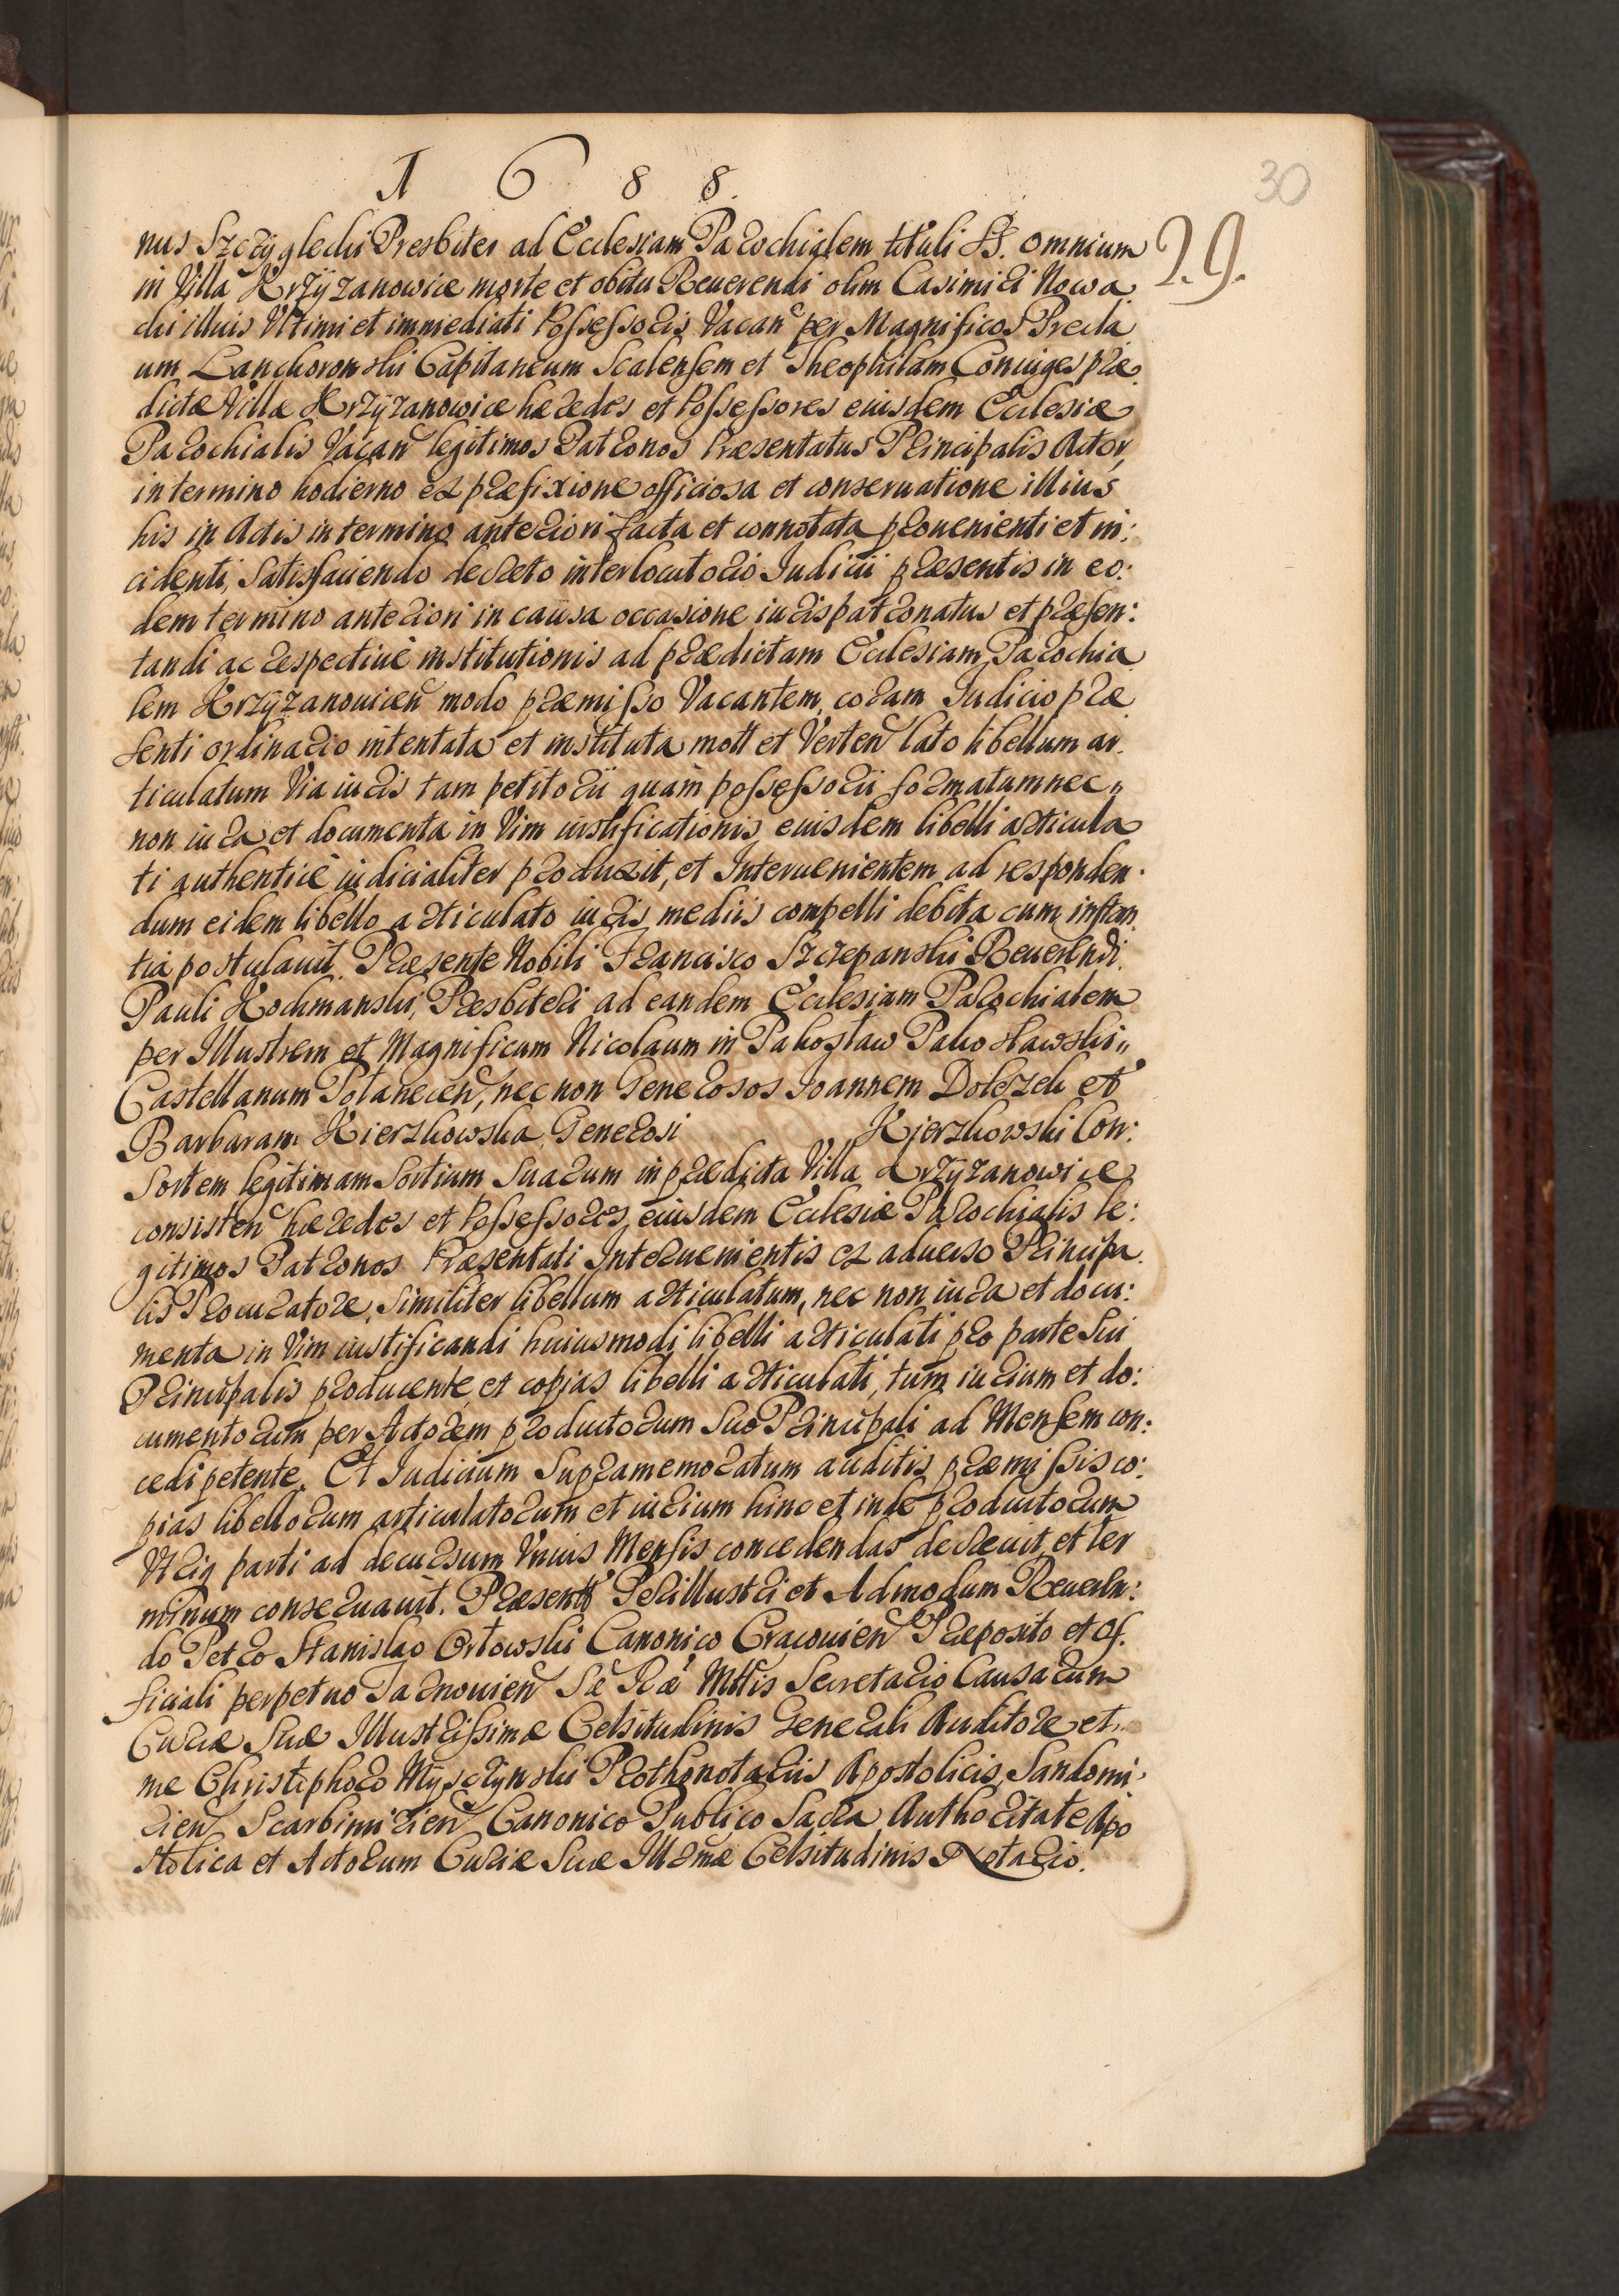 1688.
30
29.
nus Szczÿgielski Presbiter ad Ecclesiam Parochialem tituli SS. omnium
in Villa Krzÿzanowice morte et obitu Reuerendi olim Casimiri Nowa
cki illius Vltimi et immediati Possessoris Vacan̄ per Magnificos Precla
um Lanckoronski Capitaneum Scalensem et Theophilam Coniuges præ
dictæ Villæ Krzÿzanowice hæredes et Possessores eiusdem Ecclesiæ
Parochialis Vacan̄ legitimos Patronos Præsentatus Principalis Actor,
in termino hodierno ex præfixione officiosa et conseruatione illius
his in Actis in termino anteriori facta et connotata prouenienti et in:
cidenti, Satisfaciendo decreto interlocutorio Iudicii præsentis in eo:
dem termino anteriori in caüsa occasione iuris patronatus et præsen:
tandi ac respectiuè institutionis ad prædictam Ecclesiam Parochia
lem Krzÿzanouicen̄ modo præmisso Vacantem, coram Iudicio præ
senti ordinario intentata et instituta mott et Verten̄ lato libellum ar.
ticulatum Via iuris tam petitorii quam possessorii formatum nec„
non iura et documenta in Vim iustificationis eiusdem libelli articula
ti authenticè iudicialiter produxit, et Interuenientem ad responden.
dum eidem libello articulato iuris mediis compelli debita cum instan
tia postulauit. Præsente Nobili Francisco Szczepanski Reuerendi
Pauli Kochmanski, Presbiteri ad eandem Ecclesiam Parochialem
per Illustrem et Magnificum Nicolaum in Pakosław Pakosławski„
Castellanum Połanecen̄, nec non Generosos Ioannem Dołęzek et
Barbaram Kierzkowska Generosi Kierzkowski Con:
Sortem legitimam Sortium Suarum in prædicta Villa Krzÿzanowice
consisten̄ hæredes et Possessores eiusdem Ecclesiæ Parochialis le:
gitimos Patronos Præsentati Interuenientis ex aduerso Principa
lis Procuratore, Similiter libellum articulatum, nec non iura et docu:
menta in Vim iustificandi huiusmodi libelli articulati pro parte Sui
Principalis producente, et copias libelli articulati, tum iurium et do:
cumentorum per Actorem productorum Suo Principali ad Mensem con:
cedi petente. Et Iudicium Supramemoratum auditis præmissis co:
pias libellorum articulatorum et iurium hinc et inde productorum
Vtriq parti ad decursum Vnius Mensis concedendas decreuit, et ter
minum conseruauit. Præsentt Perillustri et Admodum Reueren:
do Petro Stanislao Orłowski Canonico Cracouien̄ Præposito et of.
ficiali perpetuo Tarnouien̄ Sæ Ræ Mttis Secretario Causarum
Curiæ Suæ Illustrissimæ Celsitudinis Generali Auditore et
me Christophoro Mÿsczÿnski Prothonotariis Apostolicis, Sandomi.
rien̄ Scarbimirien̄ Canonico Publico Sacra Authoritate Apo
stolica et Actorum Curiæ Suæ Illrmæ Celsitudinis Notario.